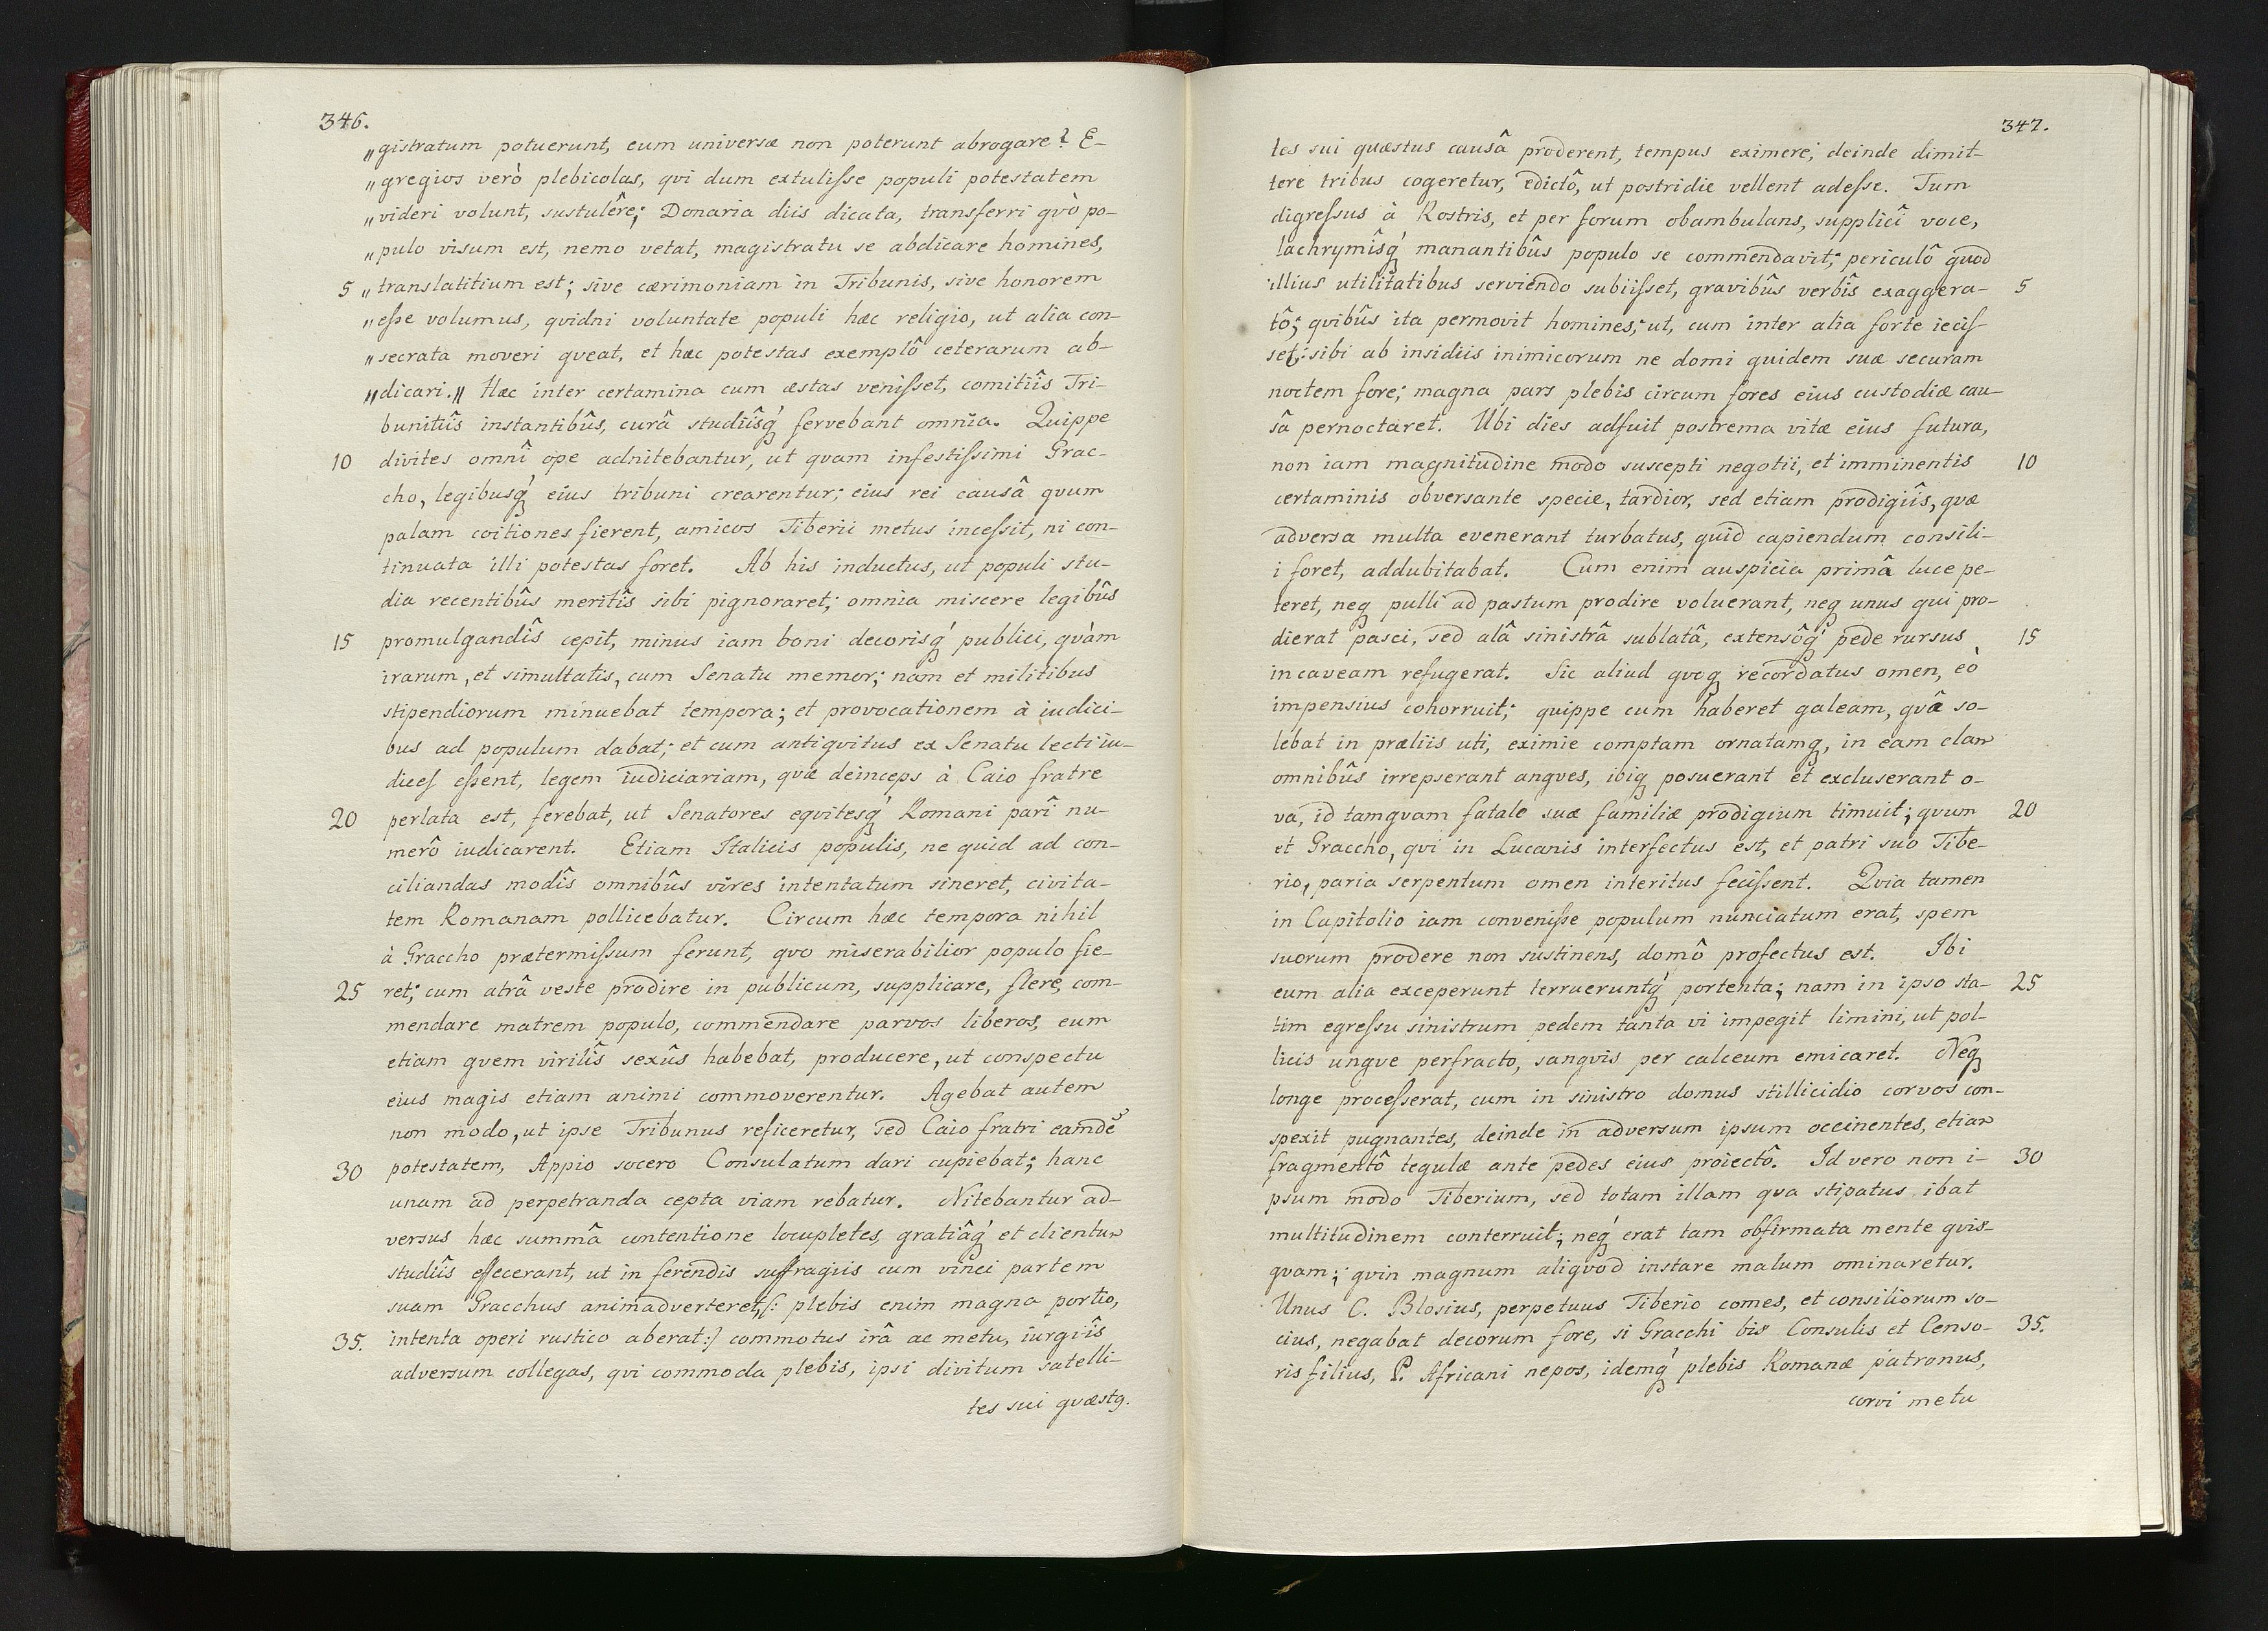 346.
„gistratum potuerunt, eum universæ non poterunt abrogare? E-
„gregios verò plebicolas, qvi dum extulisse populi potestatem
„videri volunt, sustulêre; Donaria diis dicata, transferri qvò po-
„pulo visum est, nemo vetat, magistratu se abdicare homines,
5 „translatitium est; sive cærimoniam in Tribunis, sive honorem
„esse volumus, qvidni voluntate populi hæc religio, ut alia con-
„secrata moveri qveat, et hæc potestas exemplô ceterarum ab-
„dicari.„ Hæc inter certamina cum æstas venisset, comitiîs Tri-
bunitiîs instantibûs, curâ studiîsq́ fervebant omnia. Quippe
10 divites omnî ope adnitebantur, ut qvam infestissimi Grac-
cho, legibusq́ eius tribuni crearentur; eius rei causâ qvum
palam coitiones fierent, amicos Tiberii metus incessit, ni con-
tinuata illi potestas foret. Ab his inductus, ut populi stu-
dia recentibûs meritîs sibi pignoraret; omnia miscere legibûs
15 promulgandîs cepit, minus iam boni decorisq́ publici, qvàm
irarum, et simultatis, cum Senatu memor; nam et militibus
stipendiorum minuebat tempora; et provocationem à iudici-
bus ad populum dabat; et cum antiqvitus ex Senatu lecti iu-
dices essent, legem iudiciariam, qvæ deinceps à Caio fratre
20 perlata est, ferebat, ut Senatores eqvitesq́ Romani parî nu-
merô iudicarent. Etiam Italicis populis, ne quid ad con-
ciliandas modîs omnibûs vires intentatum sineret, civita-
tem Romanam pollicebatur. Circum hæc tempora nihil
à Graccho prætermissum ferunt, qvo miserabilior populo fie-
25 ret; cum atrâ veste prodire in publicum, supplicare, flere, com-
mendare matrem populo, commendare parvos liberos, eum
etiam qvem virilîs sexûs habebat, producere, ut conspectu
eius magis etiam animi commoverentur. Agebat autem
non modo, ut ipse Tribunus reficeretur, sed Caio fratri eamdẽ
30 potestatem, Appio socero Consulatum dari cupiebat; hanc
unam ad perpetranda cepta viam rebatur. Nitebantur ad-
versus hæc summâ contentione locupletes, gratiâq́ et clientum
studiîs effecerant, ut in ferendis suffragiis cum vinci partem
suam Gracchus animadverteret, /: plebis enim magna portio,
35. intenta operi rustico aberat:/ commotus irâ ac metu, iurgiîs
adversum collegas, qvi commoda plebis, ipsi divitum satelli-
tes sui qvæstq.
347.
tes sui quæstus causâ proderent, tempus eximere; deinde dimit-
tere tribus cogeretur, edictô, ut postridie vellent adesse. Tum
digressus à Rostris, et per forum obambulans, supplicî voce,
lachrymîsq́ manantibûs populo se commendavit; periculô quod
illius utilitatibus serviendo subiisset, gravibûs verbîs exaggera- 5
tô; qvibûs ita permovit homines; ut, cum inter alia forte iecis
set; sibi ab insidiis inimicorum ne domi quidem suæ securam
noctem fore; magna pars plebis circum fores eius custodiæ cau-
sâ pernoctaret. Ubi dies adfuit postrema vitæ eius futura,
non iam magnitudine modo suscepti negotii, et imminentis 10
certaminis obversante specie, tardior, sed etiam prodigiîs, qvæ
adversa multa evenerant turbatus, quid capiendum consili-
i foret, addubitabat. Cum enim auspicia primâ luce pe-
teret, neq pulli ad pastum prodire voluerant, neq unus qui pro-
dierat pasci, sed alâ sinistrâ sublatâ, extensôq́ pede rursus 15
in caveam refugerat. Sic aliud qvoq recordatus omen, eò
impensius cohorruit; quippe cum haberet galeam, qvâ so-
lebat in præliis uti, eximie comptam ornatamq, in eam clam
omnibûs irrepserant angves, ibiq posuerant et excluserant o-
va, id tamqvam fatale suæ familiæ prodigium timuit; qvum 20
et Graccho, qvi in Lucanis interfectus est, et patri suo Tibe-
rio, paria serpentum omen interitus fecissent. Qvia tamen
in Capitolio iam convenisse populum nunciatum erat, spem
suorum prodere non sustinens, domô profectus est. Ibi
eum alia exceperunt terrueruntq́ portenta; nam in ipso sta- 25
tim egressu sinistrum pedem tanta vi impegit limini, ut pol-
licis ungve perfracto, sangvis per calceum emicaret. Neq
longe processerat, cum in sinistro domus stillicidio corvos con-
spexit pugnantes, deinde in adversum ipsum occinentes, etiam
fragmentô tegulæ ante pedes eius proiectô. Id vero non i- 30
psum modo Tiberium, sed totam illam qva stipatus ibat
multitudinem conterruit; neq́ erat tam obfirmata mente qvis-
qvam; qvin magnum aliqvod instare malum ominaretur.
Unus C. Blosius, perpetuus Tiberio comes, et consiliorum so-
cius, negabat decorum fore, si Gracchi bis Consulis et Censo- 35.
ris filius, P. Africani nepos, idemq́ plebis Romanæ patronus,
corvi metu